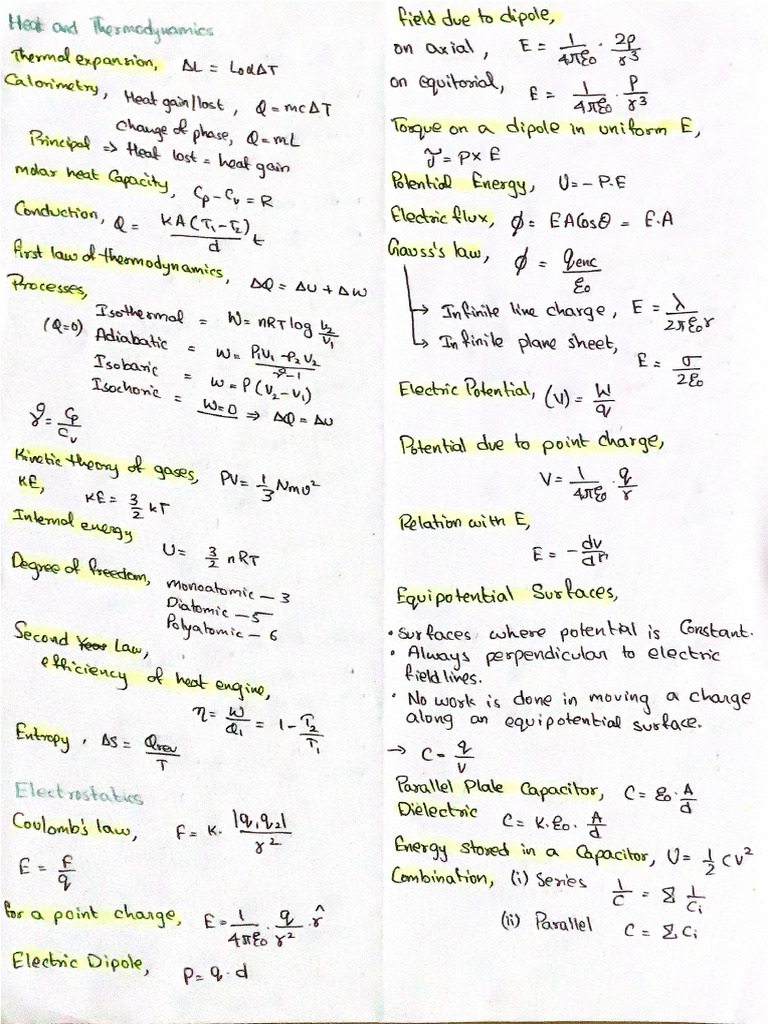 Heat and Thermodynamics
Thermal expansion, ΔL = L₀αΔT
Calorimetry, Heat gain/lost, Q = mcΔT
Change of phase, Q = mL
Principal ⇒ Heat lost = heat gain
molar heat Capacity, Cp - Cv = R
Conduction, Q = KA(T₁-T₂)/d t
first law of thermodynamics, ΔQ = ΔU + ΔW
Processes,
Isothermal = W = nRT log V₂/V₁
(Q=0) Adiabatic = W = P₁V₁ - P₂V₂/γ-1
Isobaric = W = P(V₂-V₁)
Isochoric = W=0 ⇒ ΔQ = ΔU
γ = Cp/Cv
Kinetic theory of gases, PV = 1/3 Nmv²
KE, KE = 3/2 kT
Internal energy
U = 3/2 nRT
Degree of freedom, monoatomic - 3
Diatomic - 5
Polyatomic - 6
Second Law,
efficiency of heat engine,
η = W/Q₁ = 1 - T₂/T₁
Entropy, ΔS = Qrev/T
Electrostatics
Coulomb's law, F = K. |q₁q₂|/r²
E = F/q
for a point charge, E = 1/4πε₀ . q/r² . r̂
Electric Dipole, P = q.d
field due to dipole,
on axial, E = 1/4πε₀ . 2P/r³
on equitorial, E = 1/4πε₀ . P/r³
Torque on a dipole in uniform E,
τ = P×E
Potential Energy, U = -P.E
Electric flux, ϕ = EACosθ = E.A
Gauss's law, ϕ = qenc/ε₀
→ Infinite line charge, E = λ/2πε₀r
→ Infinite plane sheet, E = σ/2ε₀
Electric Potential, (V) = W/q
Potential due to point charge,
V = 1/4πε₀ . q/r
Relation with E,
E = -dv/dr
Equipotential Surfaces,
• Surfaces where potential is Constant.
• Always perpendicular to electric
field lines.
• No work is done in moving a charge
along an equipotential surface.
→ C = q/V
Parallel Plate Capacitor, C = ε₀.A/d
Dielectric C = K.ε₀. A/d
Energy stored in a Capacitor, U = 1/2 CV²
Combination, (i) Series 1/C = Σ 1/Ci
(ii) Parallel C = Σ Ci